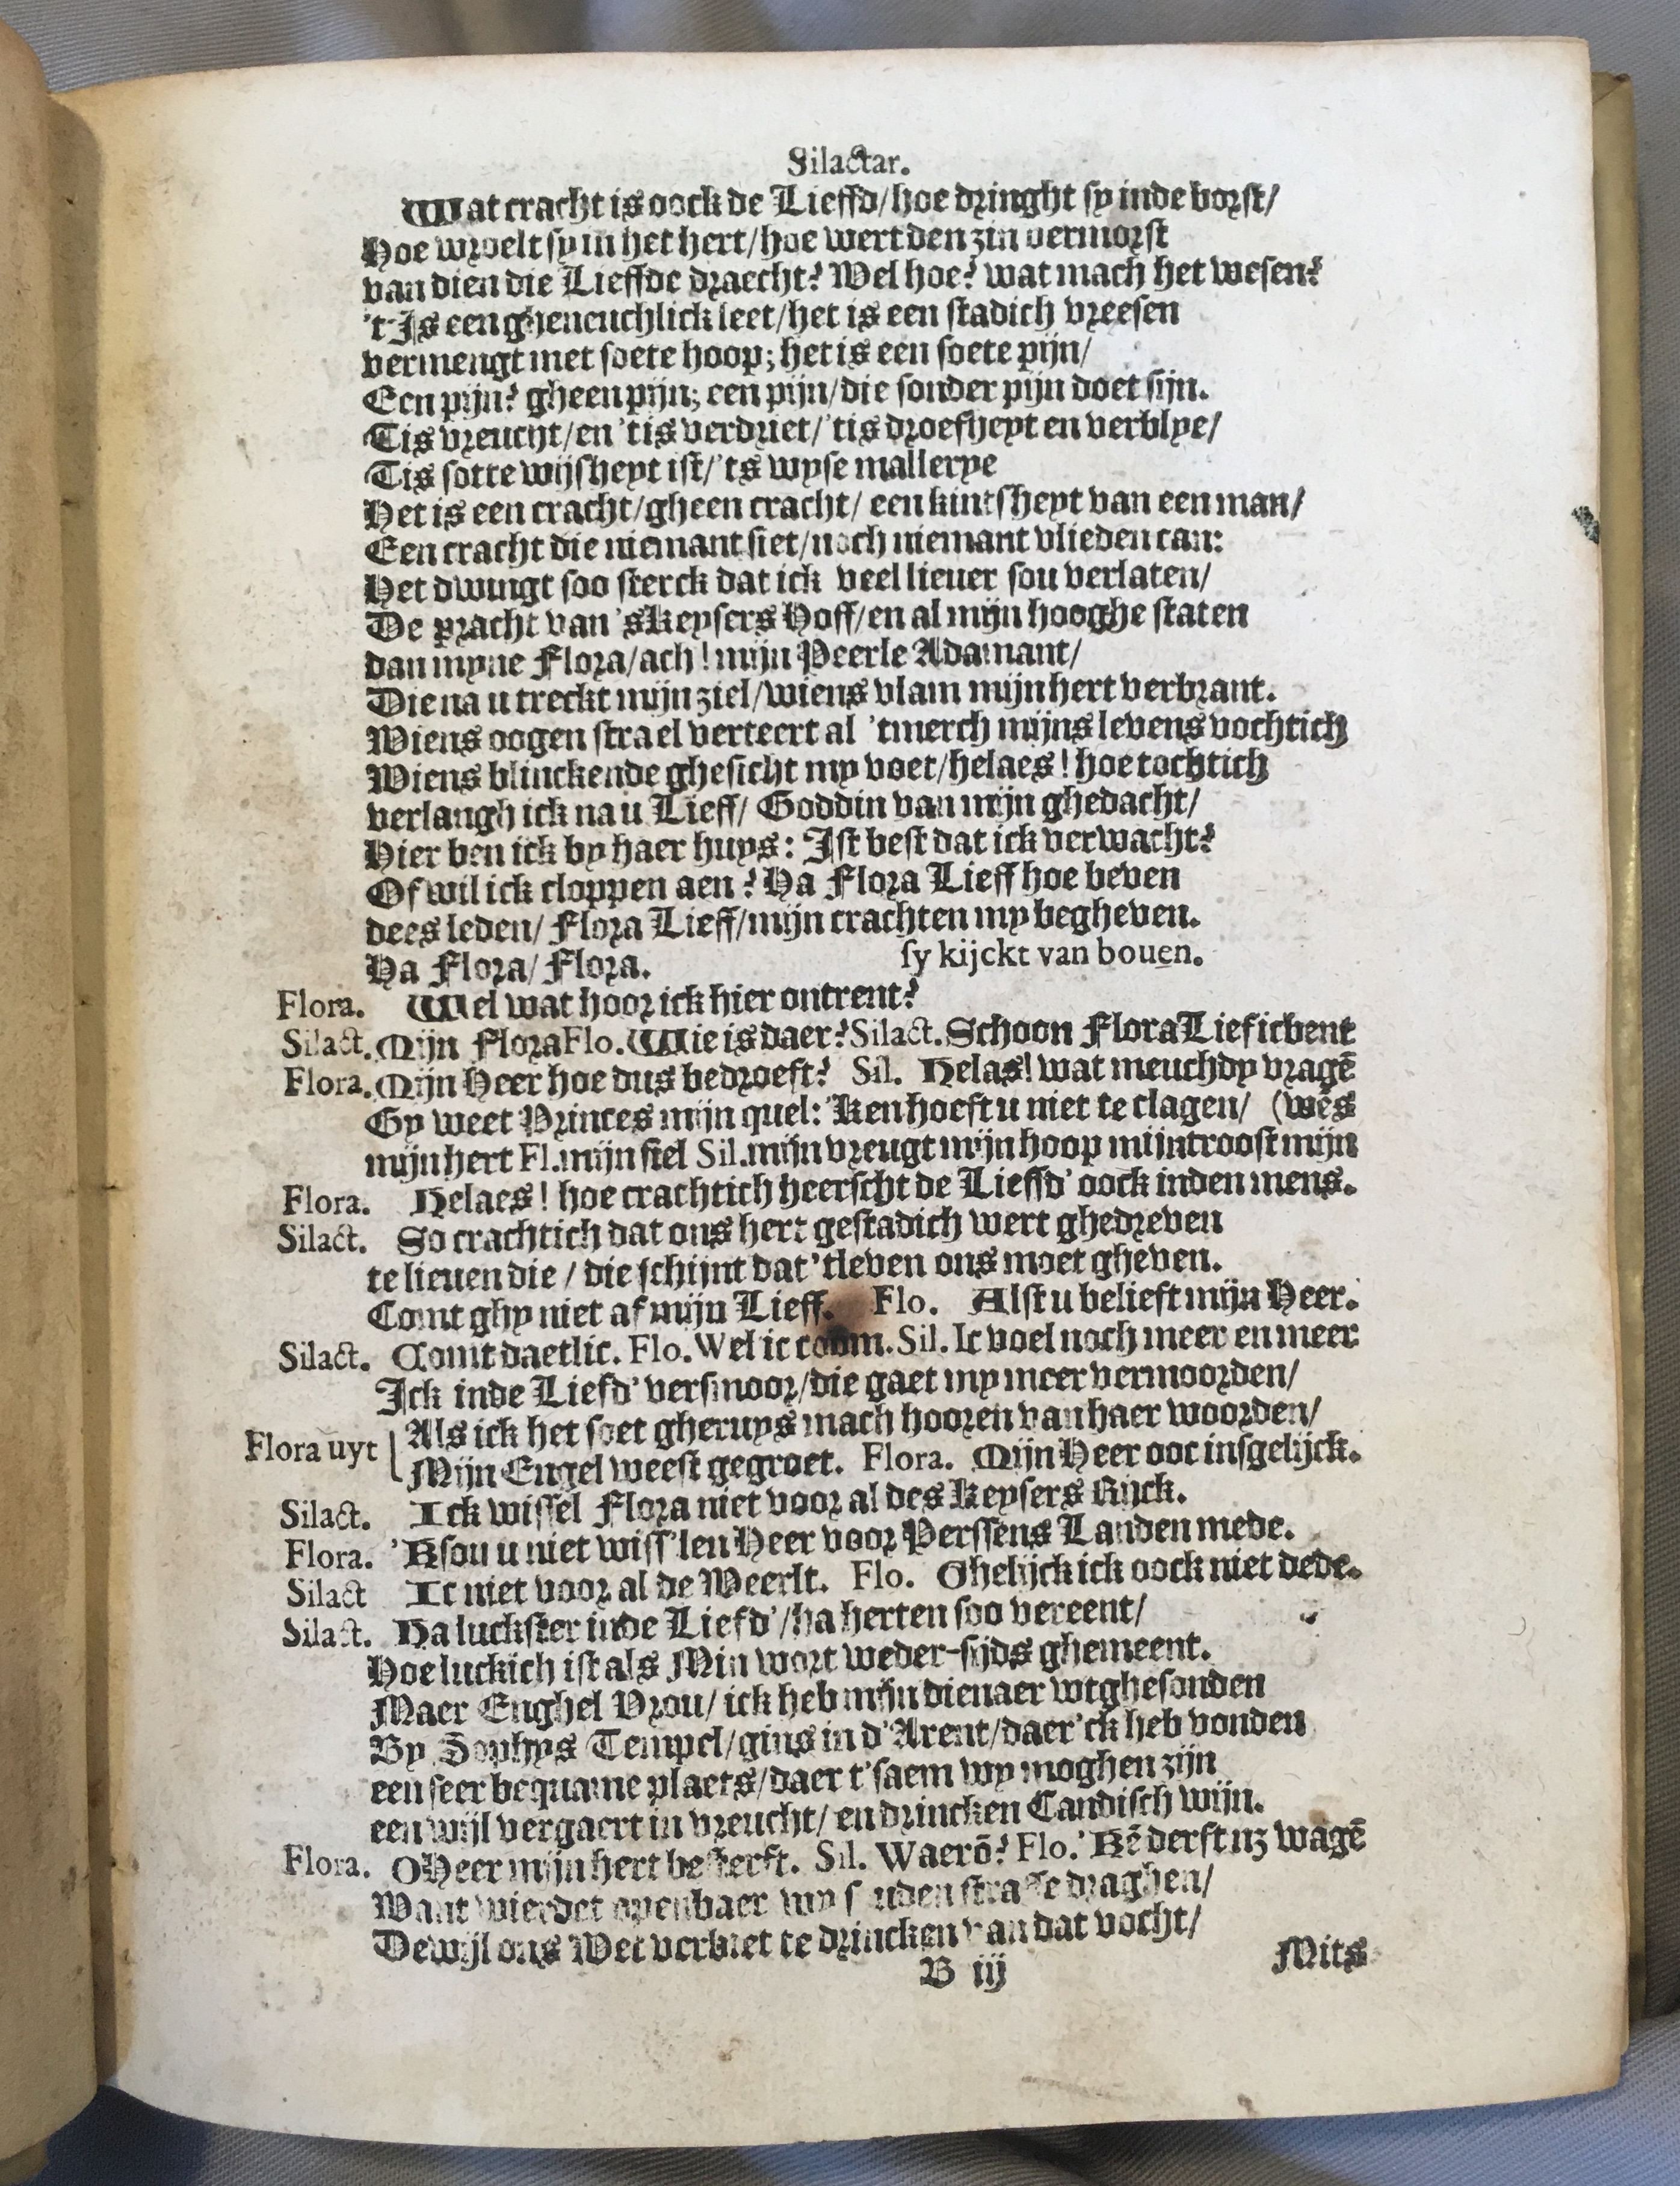 Silactar.
Wat cracht is oock de Lieffd/hoe dringht sy inde borst/
Hoe wroelt sy in het hert/hoe wert den zin vermorst
van dien die Lieffde draecht? Wel hoe? wat mach het wesen?
't Is een gheneuchlick leet/het is een stadich vreesen
vermengt met soete hoop; het is een soete pijn/
Een pijn? gheen pijn; een pijn/die sonder pijn doet sijn.
Tis vreucht/en 'tis verdriet/'tis droefheyt en verblye/
Tis sotte wijsheyt ist/'ts wyse mallerye
Het is een cracht/gheen cracht/ een kintsheyt van een man/
Een cracht die niemant siet/noch niemant vlieden can:
Het dwingt soo sterck dat ick veel liever sou verlaten/
De pracht van 'sKeysers Hoff/en al mijn hooghe staten
dan myne Flora/ach! mijn Peerle Adamant/
Die na u treckt mijn ziel/wiens vlam mijn hert verbrant.
Wiens oogen strael verteert al 'tmerch mijns levens vochtich
Wiens blinckende ghesicht my voet/helaes! hoe tochtich
verlangh ick na u Lieff/ Goddin van mijn ghedacht/
Hier ben ick by haer huys: Ist best dat ick verwacht?
Of wil ick cloppen aen? Ha Flora Lieff hoe beven
dees leden/ Flora Lieff/mijn crachten my begheven.
Ha Flora/ Flora. sy kijckt van bouen.
Flora. Wel wat hoor ick hier ontrent?
Silact. Mijn Flora Flo. Wie is daer? Silact. Schoon Flora Lief icbent
Flora. Mijn Heer hoe dus bedroeft? Sil. Helas! wat meuchdy vragē
Gy weet Princes mijn quel: 'Ken hoeft u niet te clagen/ (wēs
mijn hert Fl. mijn siel Sil. mijn vreugt mijn hoop mijn troost mijn
Flora. Helaes! hoe crachtich heerscht de Lieffd' oock inden mens.
Silact. So crachtich dat ons hert gestadich wert ghedreven
te lieuen die / die schijnt dat 'tleven ons moet gheven.
Comt ghy niet af mijn Lieff. Flo. Alst u belieft mijn Heer.
Silact. Comt daetlic. Flo. Wel ic coom. Sil. Ic voel noch meer en meer
Ick inde Liefd' versmoor/die gaet my meer vermoorden/
Als ick het soet gheruys mach hooren van haer woorden/
Flora uyt Mijn Engel weest gegroet. Flora. Mijn Heer ooc insgelijck.
Silact. Ick wissel Flora niet voor al des Keysers Rijck.
Flora. 'Ksou u niet wiss'len Heer voor Perssens Landen mede.
Silact Ic niet voor al de Weerlt. Flo. Ghelijck ick oock niet dede.
Silact. Ha luckster inde Liefd'/ha herten soo vereent/
Hoe luckich ist als Min wort weder-sijds ghemeent.
Maer Enghel Vrou/ ick heb mijn dienaer wtghesonden
By Sophys Tempel/gins in d'Arent/daer'ck heb vonden
een seer bequame plaets/daer t'saem wy moghen zijn
een wijl vergaert in vreucht/ en drincken Candisch wijn.
Flora. O Heer mijn hert besterft. Sil. Waerō? Flo. 'Kē derft nz wagē
Want wierdet openbaer wy souden straffe draghen/
Dewijl ons Wet verbiet te drincken van dat vocht/
B iij Mits